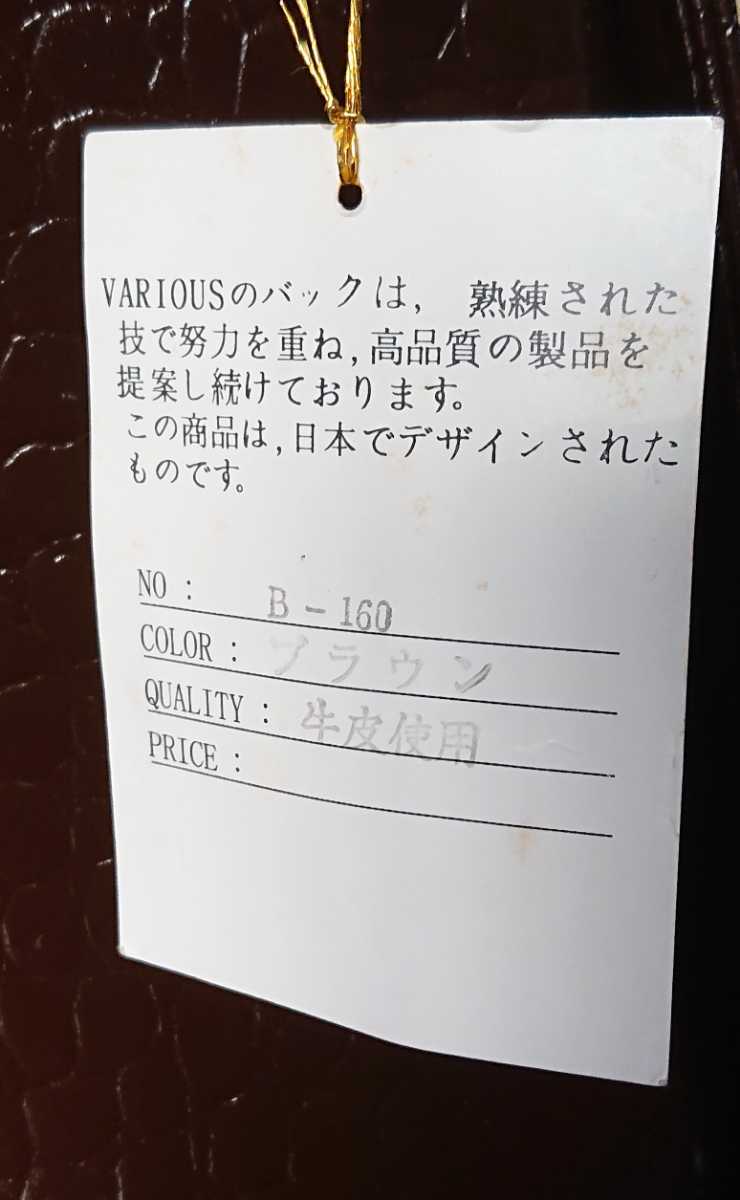 VARIOUSのバックは, 熟練された
技で努力を重ね,高品質の製品を
提案し続けております。
この商品は,日本でデザインされた
ものです。
NO : B-160
COLOR : ブラウン
QUALITY : 牛皮使用
PRICE :